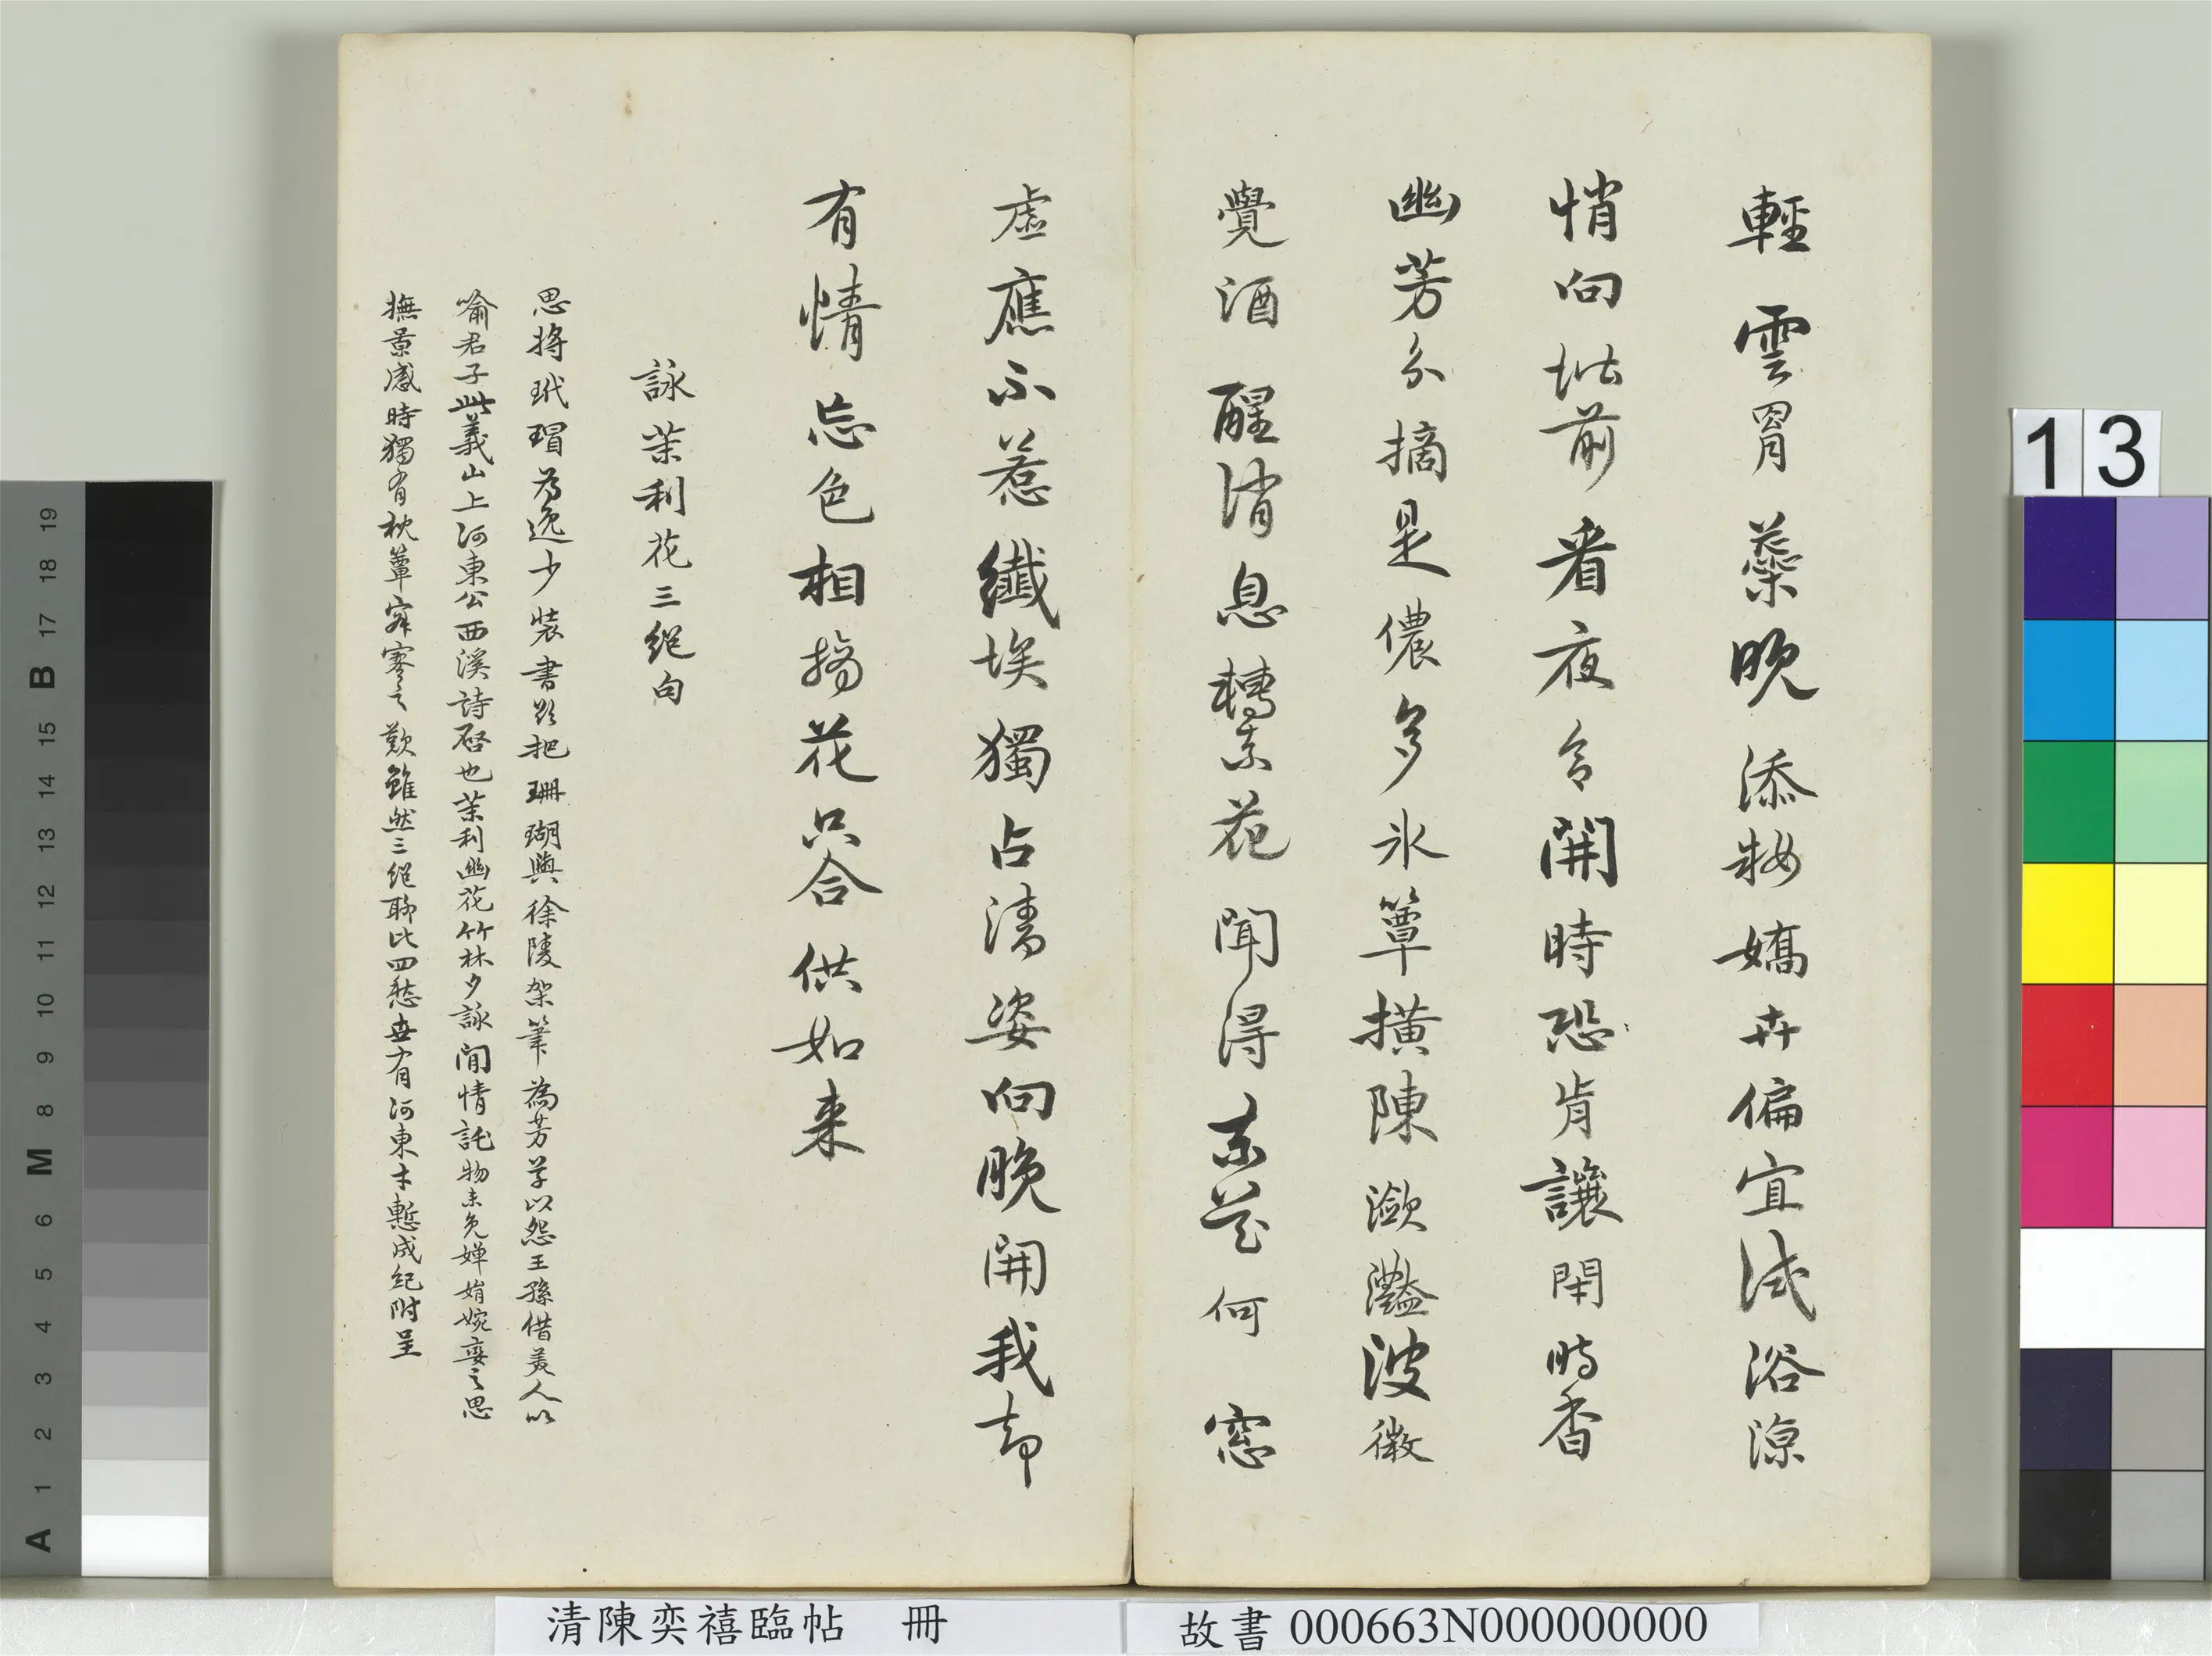 輕雲胃蘂晚添妝嬌卉偏宜浅浴涼
悄向堦前看夜合開時恐肯讓閑時香
幽芳分摘是儂多氷簟橫陳瀲灩波微
覺酒醒消息轉素花聞得素蕊何窓
虛應不惹纖埃獨占清姿向晚開我却
有情忘色相摛花只合供如来
詠茉利花三絕句
思將玳瑁為逸少裝書欲把珊瑚與徐陵架筆為芳草以怨王孫借美人以
喻君子此義山上河東公西溪詩啓也茉利幽花竹林夕詠閒情託物未免嬋娟婉孌之思
撫景感時獨有枕簟寂寥之歎雖然三絕聊比四愁無有河東才慙成紀附呈
13
清陳奕禧臨帖 冊
故書 000663N000000000
A 1 2 3 4 5 6 M 8 9 10 11 12 13 14 15 B 17 18 19